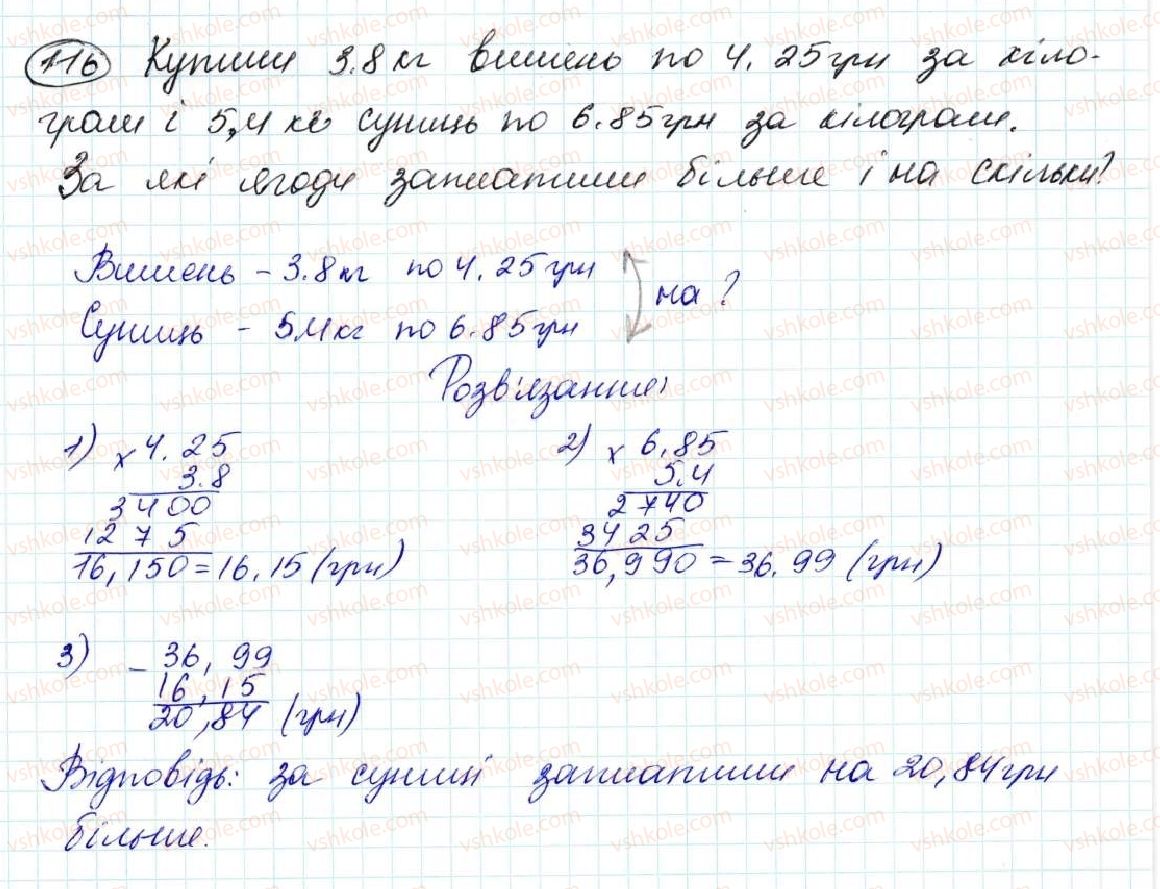 116 Купили 3.8 кг вишень по 4.25 грн за кіло-
грам і 5,4 кг суниць по 6.85 грн за кілограм.
За які ягоди заплатили більше і на скільки?
Вишень - 3.8 кг по 4.25 грн
на ?
Суниць - 5.4 кг по 6.85 грн
Розв'язання:
1) x 4.25
3.8
3400
1275
16,150 = 16.15 (грн)
2) x 6,85
5.4
2740
3425
36,990 = 36.99 (грн)
3) - 36,99
16,15
20,84 (грн)
Відповідь: за суниці заплатили на 20,84 грн
більше.